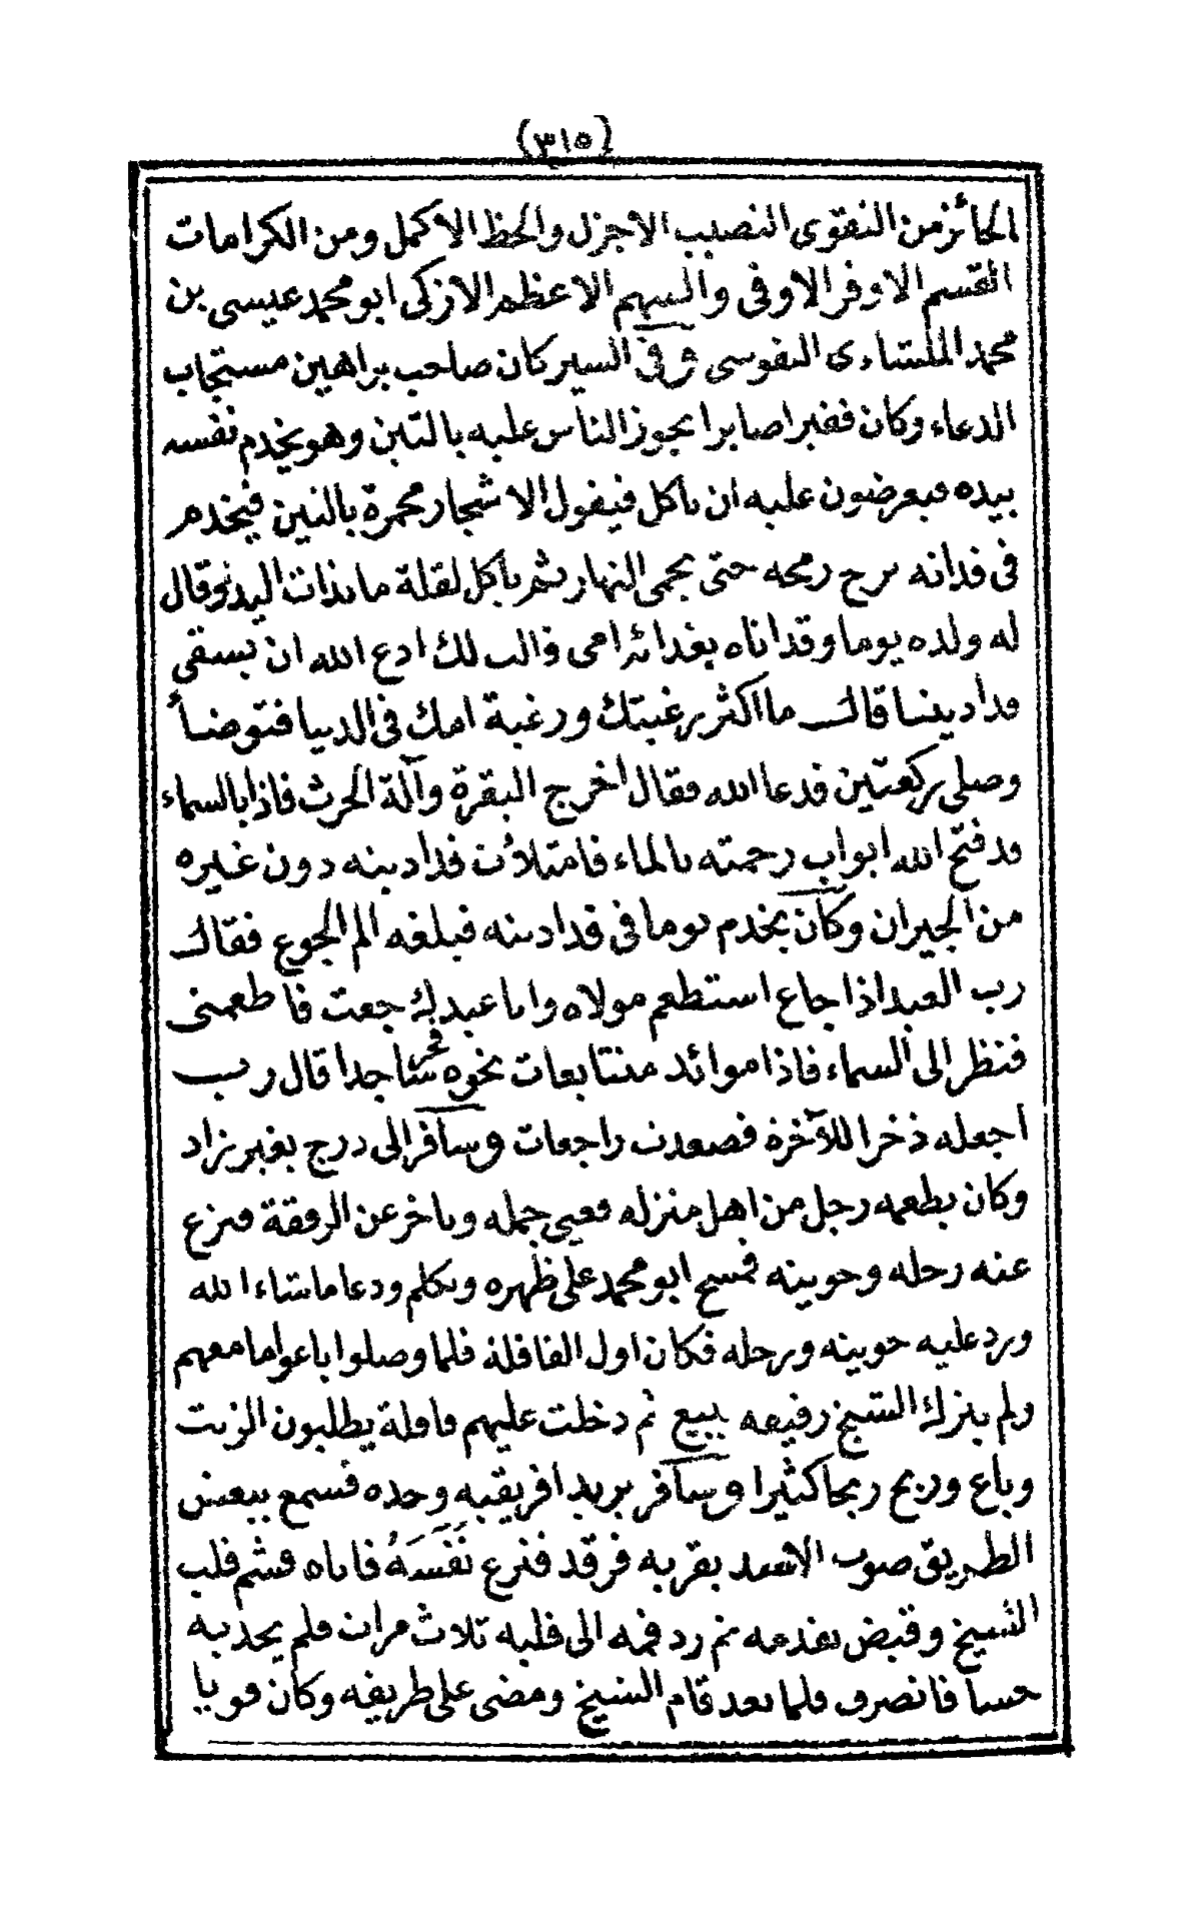 (٣١٥)
الحائز من التقوى النصيب الاجزل والحظ الاكمل ومن الكرامات
القسم الاوفر الاوفى والسهم الاعظم الازكى ابو محمد عيسى بن
محمد الملشاءى النفوسى و فى السير كان صاحب براهين مستجاب
الدعاء وكان فقيرا صابرا يجوز الناس عليه بالتين وهو يخدم نفسه
بيده فيعرضون عليه ان ياكل فيقول الاشجار محمرة بالتين فيخدم
فى فدانه حتى يحمى النهار ثم ياكل لقلة ما بذات اليد وقال
له ولده يوما وقد اتاه بغدائه امى قالت لك ادع الله ان يسقى
فدادينا قال ما اكثر رغبتك ورغبة امك فى الدنيا فتوضأ
وصلى ركعتين فدعا الله فقال اخرج البقرة وآلة الحرث فاذا بالسماء
قد فتح الله ابواب رحمته بالماء فامتلأت فدادينه دون غيره
من الجيران وكان يخدم يوما فى فدادينه فبلغه الم الجوع فقال
رب العبد اذا جاع استطعم مولاه وانا عبدك جعت فاطعمنى
فنظر الى السماء فاذا موائد متتابعات نحوه فخر ساجدا قال رب
اجعله ذخرا للآخرة فصعدت راجعات وسافر الى درج بغير زاد
وكان يطعمه رجل من اهل منزله فعيى جمله وتاخر عن الرفقة فنزع
عنه رحله وحويته فمسح ابو محمد على ظهره وتكلم ودعا ما شاء الله
ورد عليه حويته ورحله فكان اول القافلة فلما وصلوا باعوا ما معهم
ولم يترك الشيخ رفيقه يبيع ثم دخلت عليهم قافلة يطلبون الزيت
وباع وربح ربحا كثيرا وسافر يريد افريقية وحده فسمع ببعض
الطريق صوت الاسد بقربه فرقد فنزع نَفَسَهُ فاتاه فشم قلب
الشيخ وقبض بفمه ثم رد فمه الى قلبه ثلاث مرات فلم يجد به
حسا فانصرف فلما بعد قام الشيخ ومضى على طريقه وكان قويا